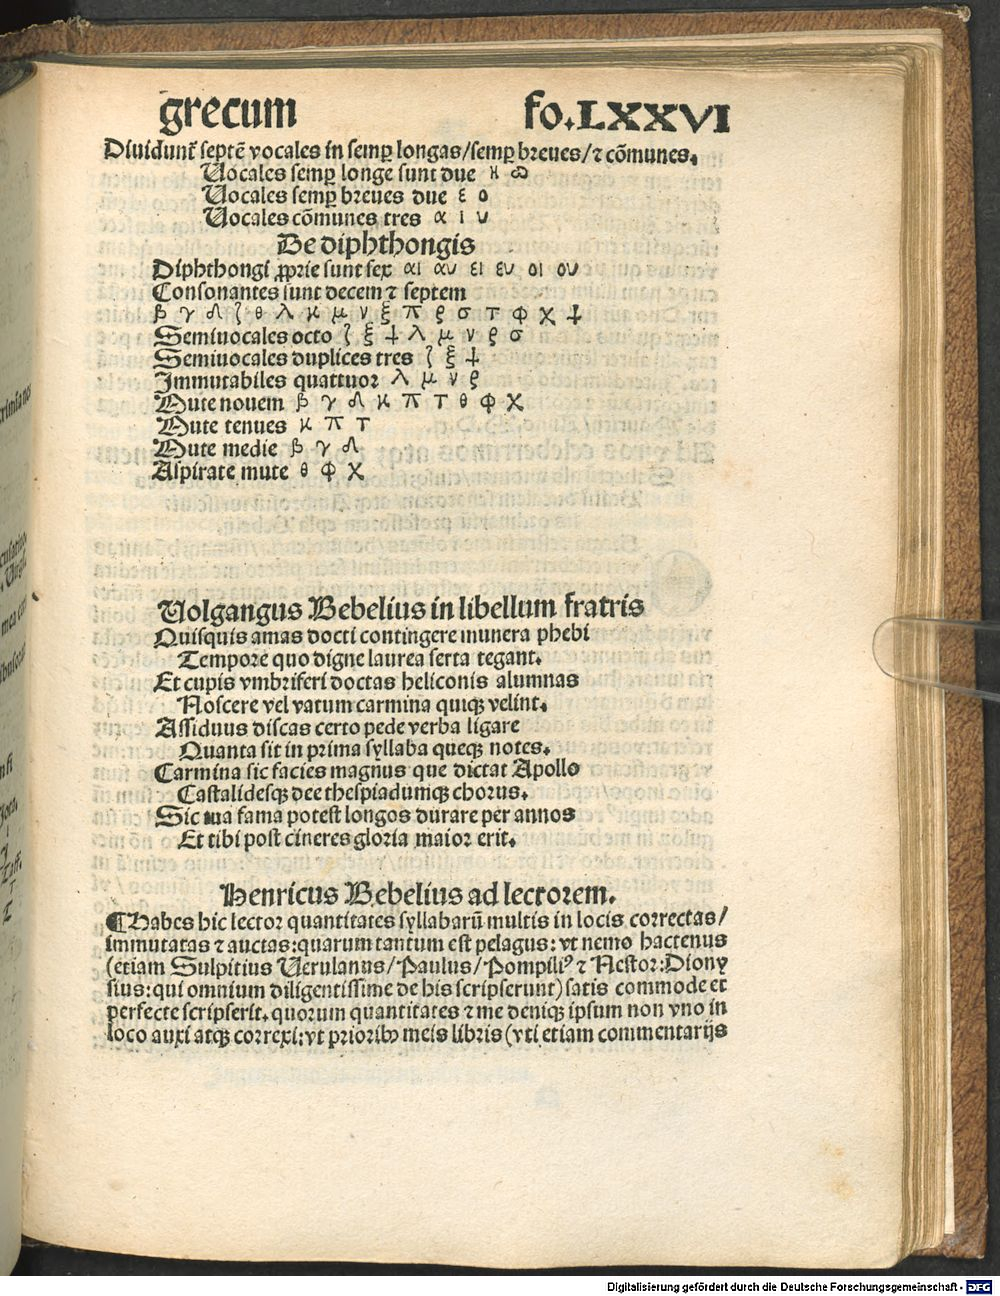 grecum fo.LXXVI
Diuidunt᷒ septē vocales in semꝑ longas/semꝑ breues/⁊ cōmunes.
Uocales semꝑ longe sunt due η ω
Uocales semꝑ breues due ε ο
Uocales cōmunes tres α ι υ
De diphthongis
Diphthongi ꝓprie sunt sex αι αυ ει ευ οι ου
Consonantes sunt decem ⁊ septem
β γ δ ζ θ λ κ μ ν ξ π ρ σ τ φ χ ψ
Semiuocales octo ζ ξ ψ λ μ ν ρ σ
Semiuocales duplices tres ζ ξ ψ
Immutabiles quattuor λ μ ν ρ
Mute nouem β γ δ κ π τ θ φ χ
Mute tenues κ π τ
Mute medie β γ δ
Aspirate mute θ φ χ
Uolgangus Bebelius in libellum fratris
Quisquis amas docti contingere munera phebi
Tempore quo digne laurea serta tegant.
Et cupis vmbriferi doctas heliconis alumnas
Noscere vel vatum carmina quiqꝫ velint.
Assiduus discas certo pede verba ligare
Quanta sit in prima syllaba queqꝫ notes.
Carmina sic facies magnus que dictat Apollo
Castalidesqꝫ dee thespiadumqꝫ chorus.
Sic tua fama potest longos durare per annos
Et tibi post cineres gloria maior erit.
Henricus Bebelius ad lectorem.
¶Habes hic lector quantitates syllabarū multis in locis correctas/
immutatas ⁊ auctas:quarum tantum est pelagus: vt nemo hactenus
(etiam Sulpitius Uerulanus/Paulus/Pompiliꝰ ⁊ Nestor:Diony
sius:qui omnium diligentissime de his scripserunt) satis commode et
perfecte scripserit. quorum quantitates ⁊ me deniqꝫ ipsum non vno in
loco auxi atqꝫ correxi:vt prioribꝰ meis libris (vti etiam commentarijs
Digitalisierung gefördert durch die Deutsche Forschungsgemeinschaft - DFG